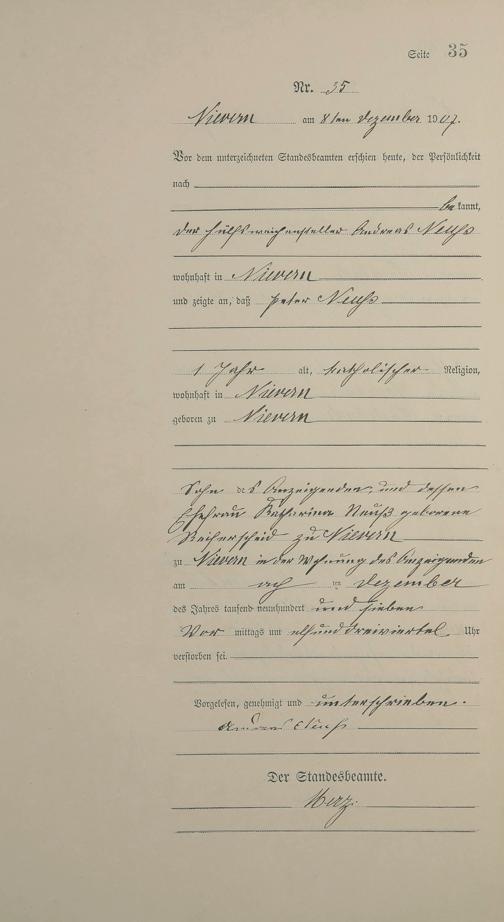 Seite 35
Nr. 35
Nievern am 8ten Dezember 1907.
Vor dem unterzeichneten Standesbeamten erschien heute, der Persönlichkeit
nach
be kannt,
der Hülfsweichensteller Andreas Neuß
wohnhaft in Nievern
und zeigte an, daß Peter Neuß
1 Jahr alt, katholischer Religion,
wohnhaft in Nievern
geboren zu Nievern
Sohn des Anzeigenden, und dessen
Ehefrau Katharina Neuß geborene
zu Nievern
zu Nievern in der Wohnung des Anzeigenden
am ten Dezember
des Jahres tausend neunhundert und sieben
Vor mittags um elfunddreiviertel Uhr
verstorben sei.
Vorgelesen, genehmigt und unterschrieben.
Andreas Neuß
Der Standesbeamte.
Merz.